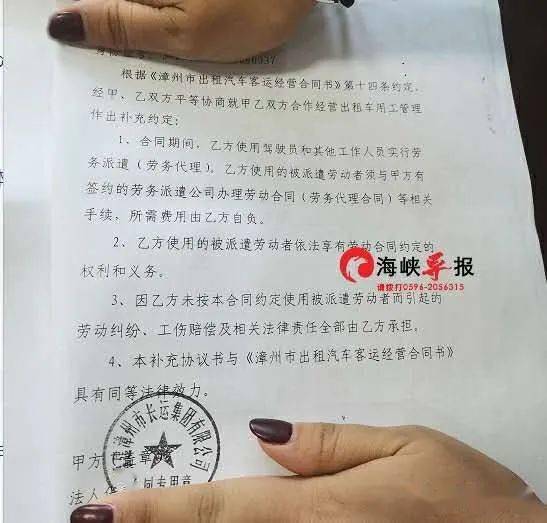 根据《漳州市出租汽车客运经营合同书》第十四条约定，
经甲、乙双方平等协商就甲乙双方合作经营出租车用工管理
作出补充约定：
1、合同期间，乙方使用驾驶员和其他工作人员实行劳
务派遣（劳务代理），乙方使用的被派遣劳动者须与甲方有
签约的劳务派遣公司办理劳动合同（劳务代理合同）等相关
手续，所需费用由乙方自负。
2、乙方使用的被派遣劳动者依法享有劳动合同约定的
权利和义务。
海峡导报
请拨打0596-2056315
3、因乙方未按本合同约定使用被派遣劳动者而引起的
劳动纠纷、工伤赔偿及相关法律责任全部由乙方承担。
4、本补充协议书与《漳州市出租汽车客运经营合同书》
具有同等法律效力。
漳州市长运集团有限公司
甲方
盖章
法人
专用章